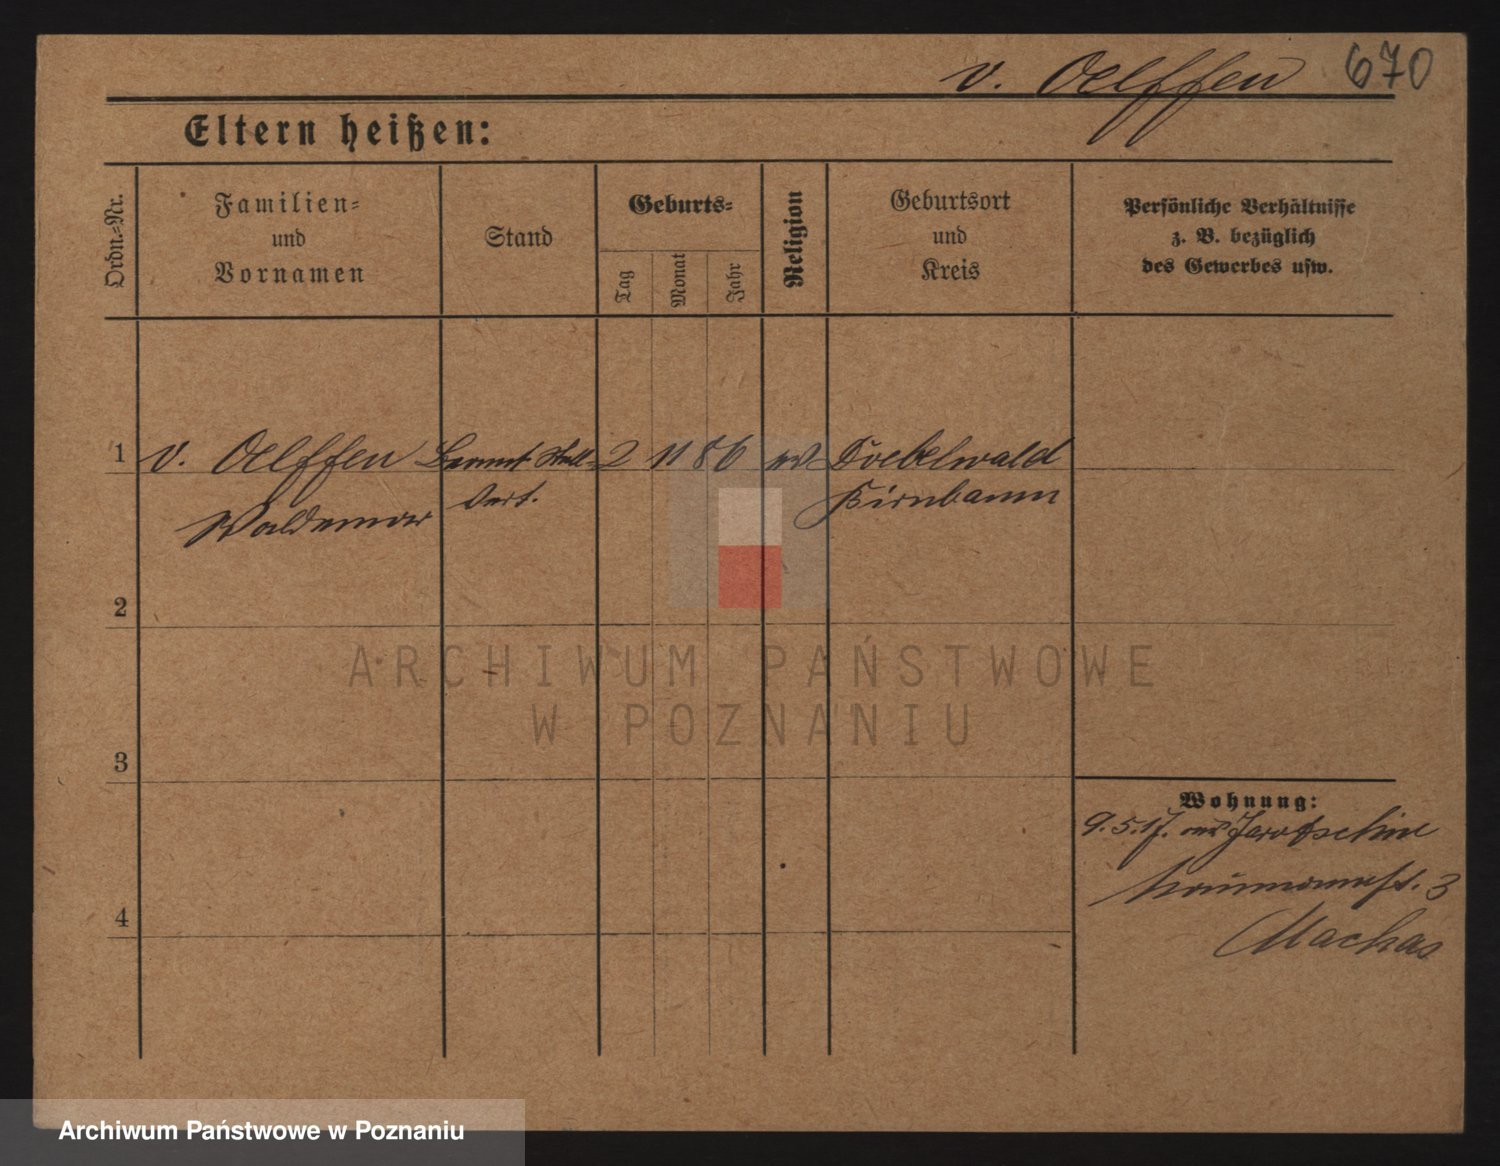 v. Oelffen 670
Eltern heißen:
Ordn.-Nr.
Familien-
und
Vornamen
Stand
Geburts-
Tag
Monat
Jahr
Religion
Geburtsort
und
Kreis
Persönliche Verhältnisse
z. B. bezüglich
des Gewerbes usw.
1 v. Oelffen 2 11 86 ev. Doebelwald
Waldemar Birnbaum
2
3
4
Wohnung:
9.5.17. aus Jarotschin
3
Machas
ARCHIWUM PAŃSTWOWE
W POZNANIU
Archiwum Państwowe w Poznaniu